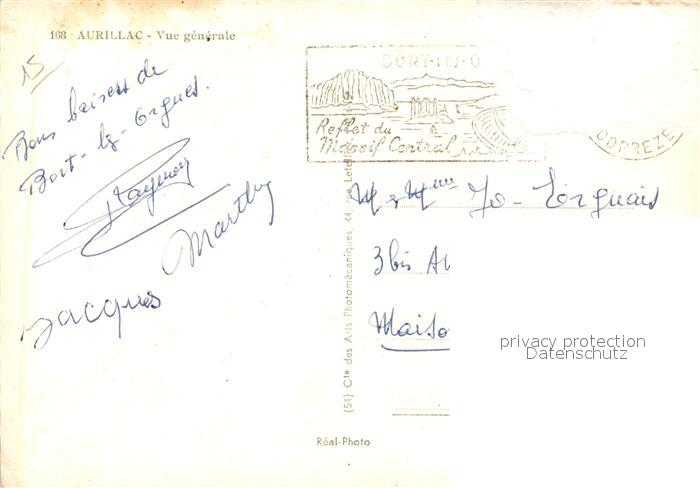 168 AURILLAC - Vue générale
15
Bons baisers de
Bort-les-Orgues.
Raymon
Marthe
Jacques
BORT-LES-O
Reflet du
Massif Central
CORREZE
M & Mme Jo-
3bis
Maiso
privacy protection
Datenschutz
(54) Cie des Arts Photomécaniques, 44, rue Letel
Réal-Photo